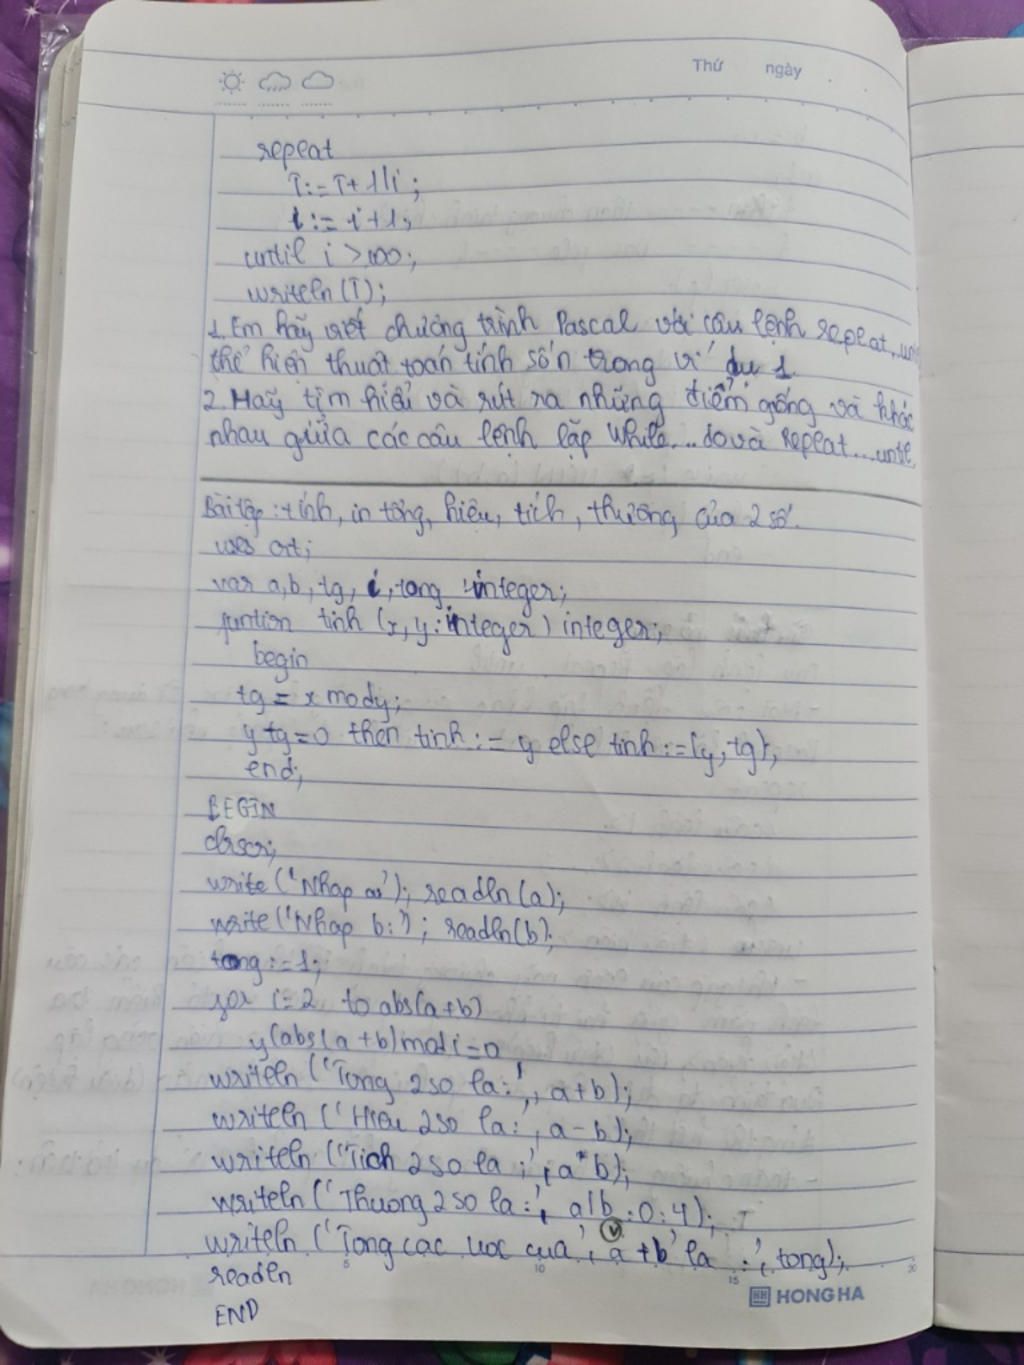 Thứ ngày
repeat
T:=T+1/i;
i:= i+1;
until i >100;
writeln(T);
1. Em hãy viết chương trình Pascal với câu lệnh repeat...un
thể hiện thuật toán tính số n trong ví dụ 1
2. Hãy tìm hiểu và rút ra những điểm giống và khác
nhau giữa các câu lệnh lặp While...do và Repeat...until
Bài tập: tính, in tổng, hiệu, tích, thương của 2 số.
uses crt;
var a,b, tg, i, tong :integer;
funtion tinh (x, y: integer) integer;
begin
tg = x mody;
y tg=0 then tinh := y else tinh:=(y, tg);
end;
BEGIN
clrscr;
write ('Nhap a:'); readln(a);
write ('Nhap b:'); readln(b);
tong :=1;
for i=2 to abs(a+b)
y(abs(a+b)mod i=0
writeln ('Tong 2 so la:', a+b);
writeln ('Hieu 2so la:, a-b);
writeln ('Tich 2 so la :', a*b);
writeln ('Thuong 2 so la:', a/b :0:4);
writeln ('Tong cac uoc cua', a+b' la :', tong);
readln
END
5 10 15 20
HH HONG HA